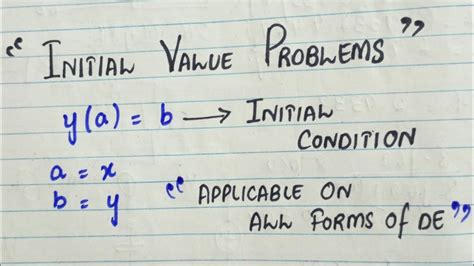 “ INITIAL VALUE PROBLEMS ”
y(a) = b → INITIAL
CONDITION
a = x
b = y
“ APPLICABLE ON
ALL FORMS OF DE ”